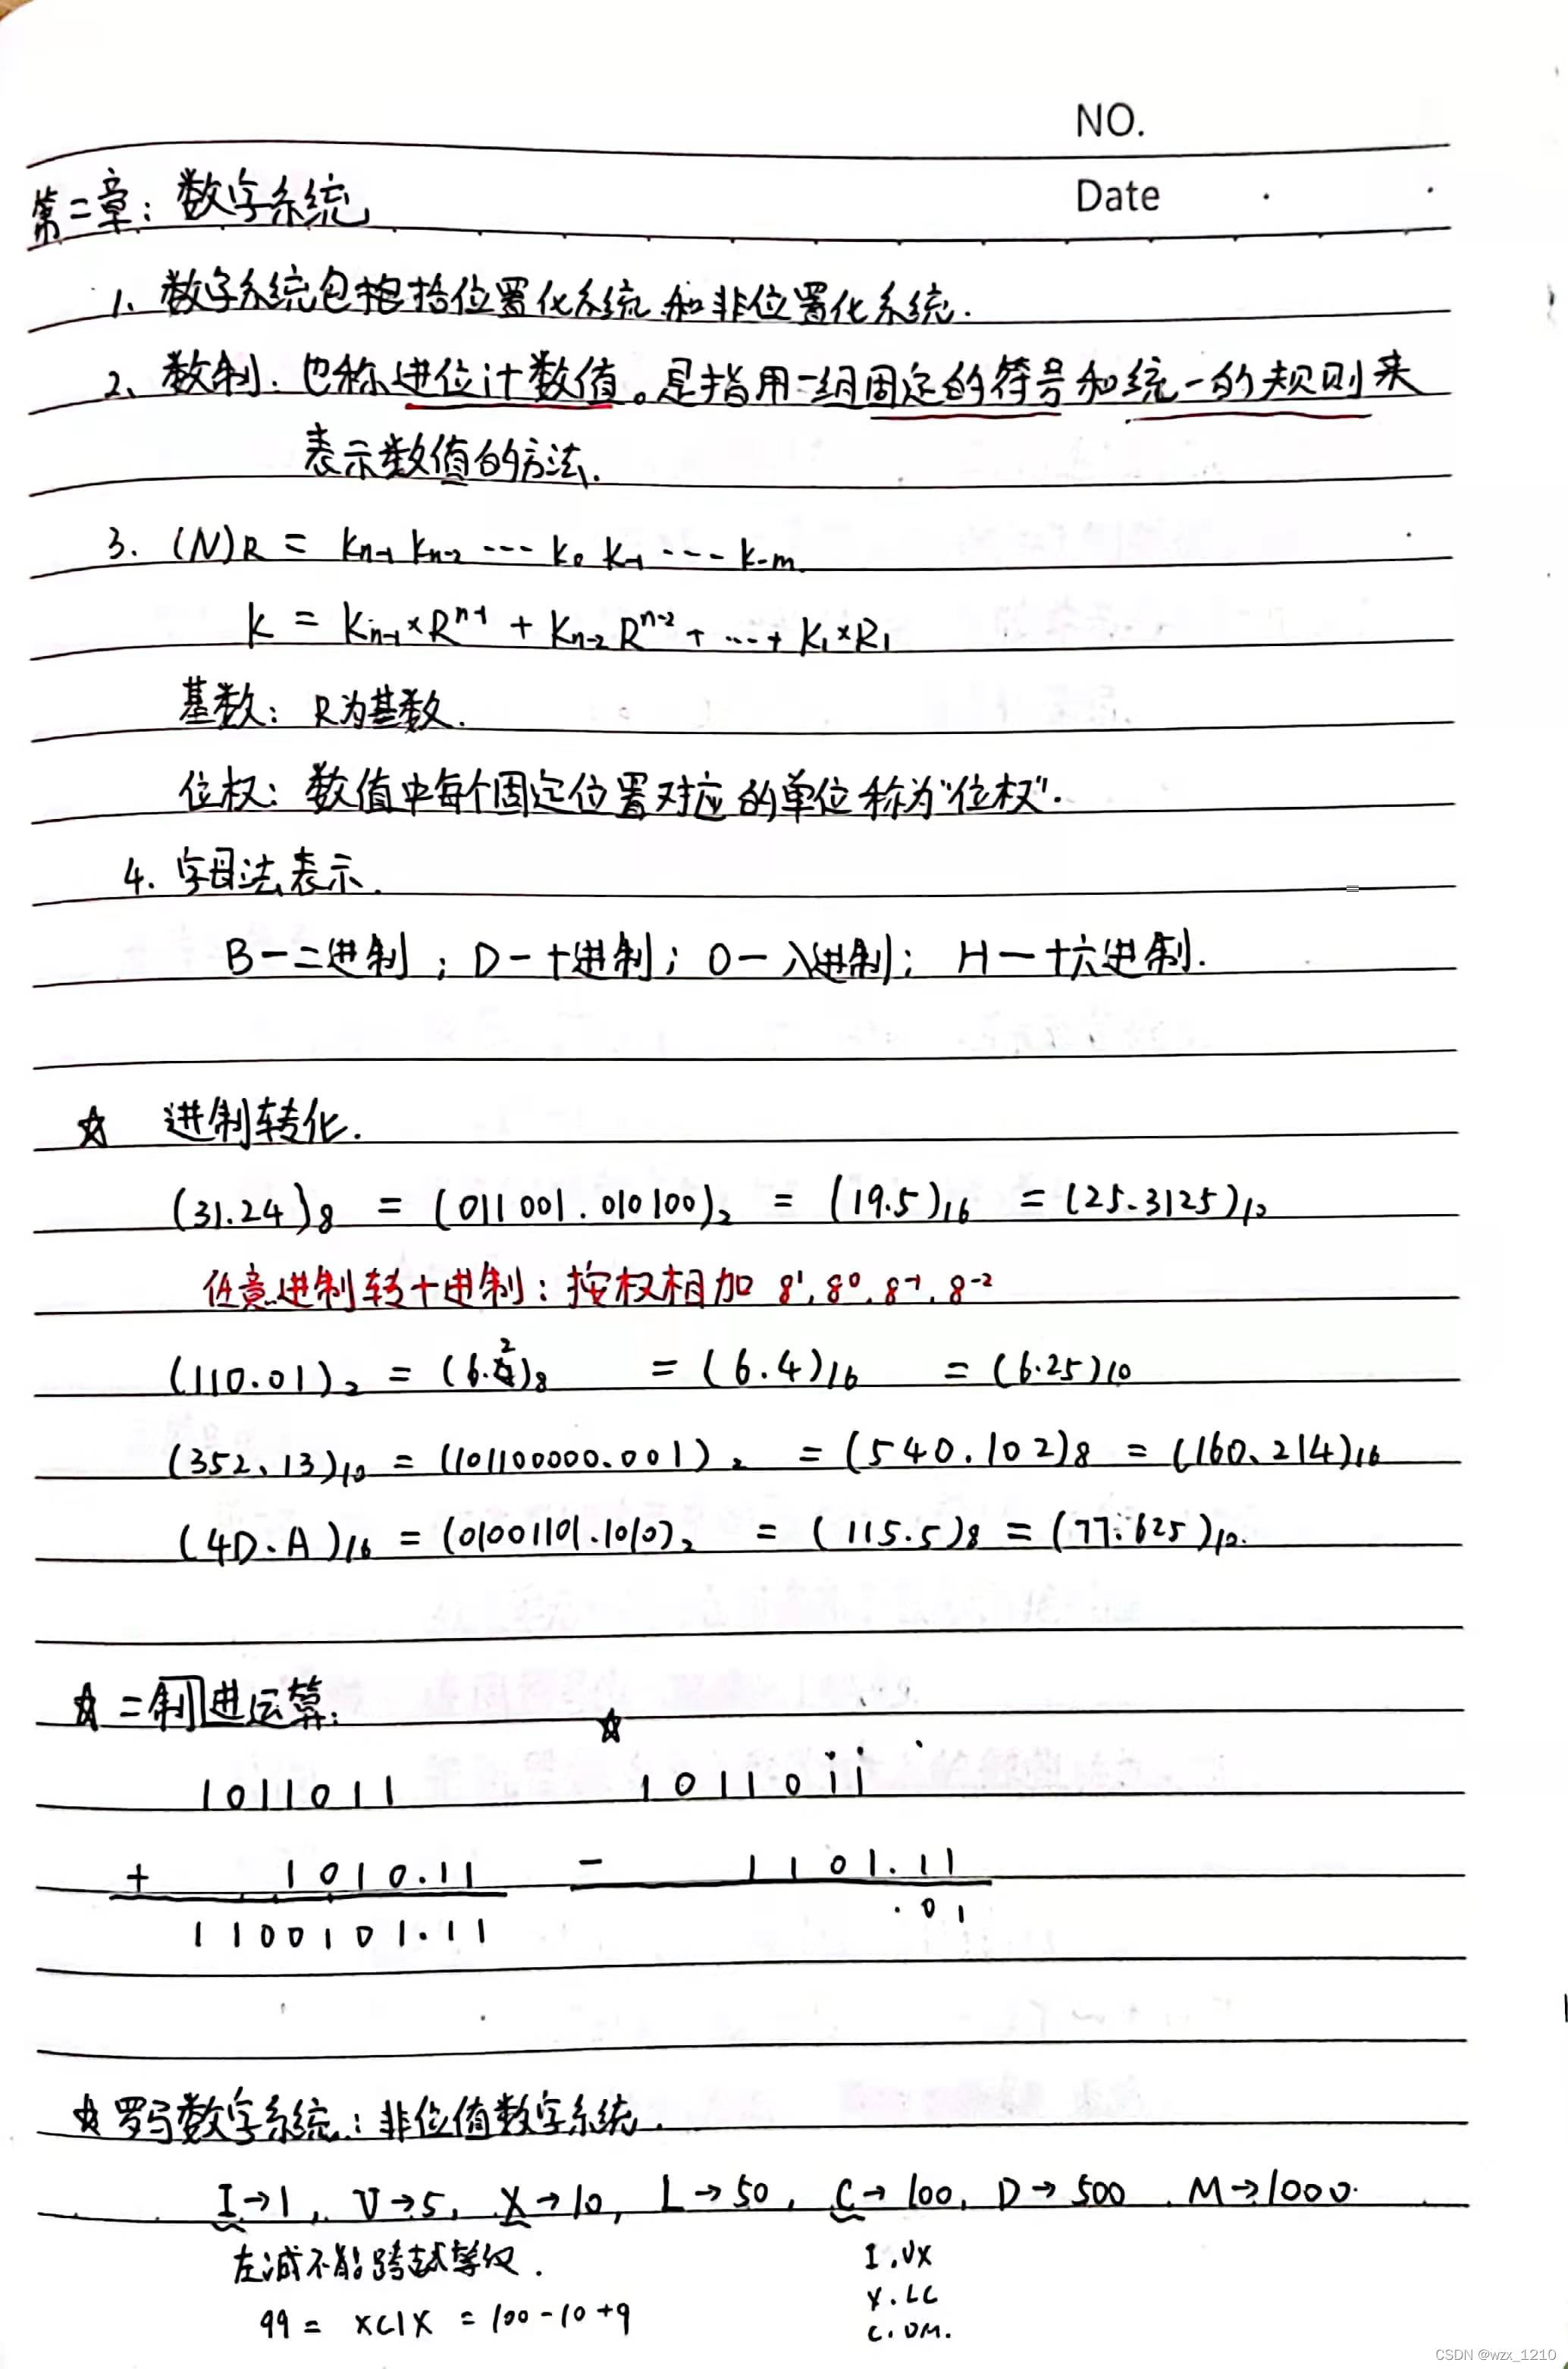 NO.
Date
第二章：数字系统
1、数字系统包括位置化系统和非位置化系统.
2、数制、也称进位计数值。是指用一组固定的符号和统一的规则来
表示数值的方法.
3. (N)R = Kn-1 Kn-2 ··· K0 K-1 ··· K-m
K = Kn-1×R^n-1 + Kn-2 R^n-2 + ··· + K1×R1
基数：R为基数.
位权：数值中每个固定位置对应的单位称为"位权".
4. 字母法表示.
B—二进制；D—十进制；O—八进制；H—十六进制.
☆ 进制转化.
(31.24)8 = (011001.010100)2 = (19.5)16 = (25.3125)10
任意进制转十进制：按权相加 8^1, 8^0, 8^-1, 8^-2
(110.01)2 = (6.2)8 = (6.4)16 = (6.25)10
(352.13)10 = (101100000.001)2 = (540.102)8 = (160.214)16
(4D.A)16 = (01001101.1010)2 = (115.5)8 = (77.625)10.
☆ 二制进运算：
☆
1011011 1011011
+ 1010.11 - 1101.11
1100101.11 .01
☆罗马数字系统：非位值数字系统.
I→1, V→5, X→10, L→50, C→100, D→500, M→1000.
左减不能跨越等级.
I.VX
99 = XCIX = 100-10+9
X.LC
C.DM.
CSDN @wzx_1210